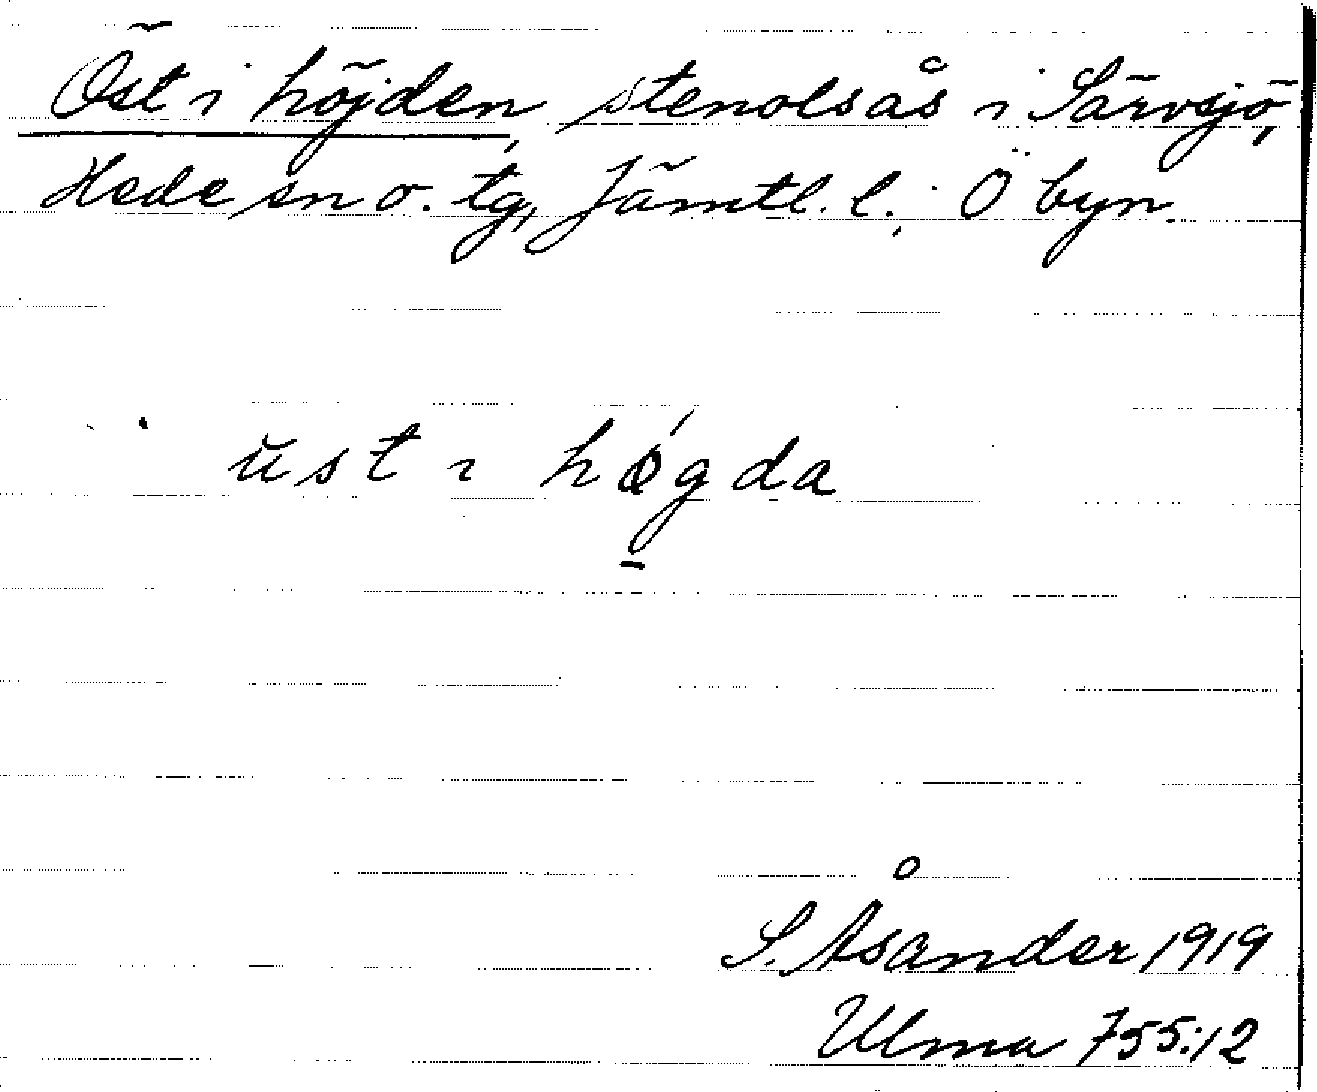 Öst i höjden, stenolsås i Särvsjö,
Hede sn o. tg, Jämtl. l.; Ö byn.
üst i høgda
S. Åsander 1919
Ulma 755:12